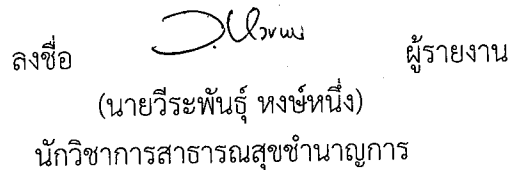 ลงชื่อ ผู้รายงาน
(นายวีระพันธุ์ หงษ์หนึ่ง)
นักวิชาการสาธารณสุขชำนาญการ